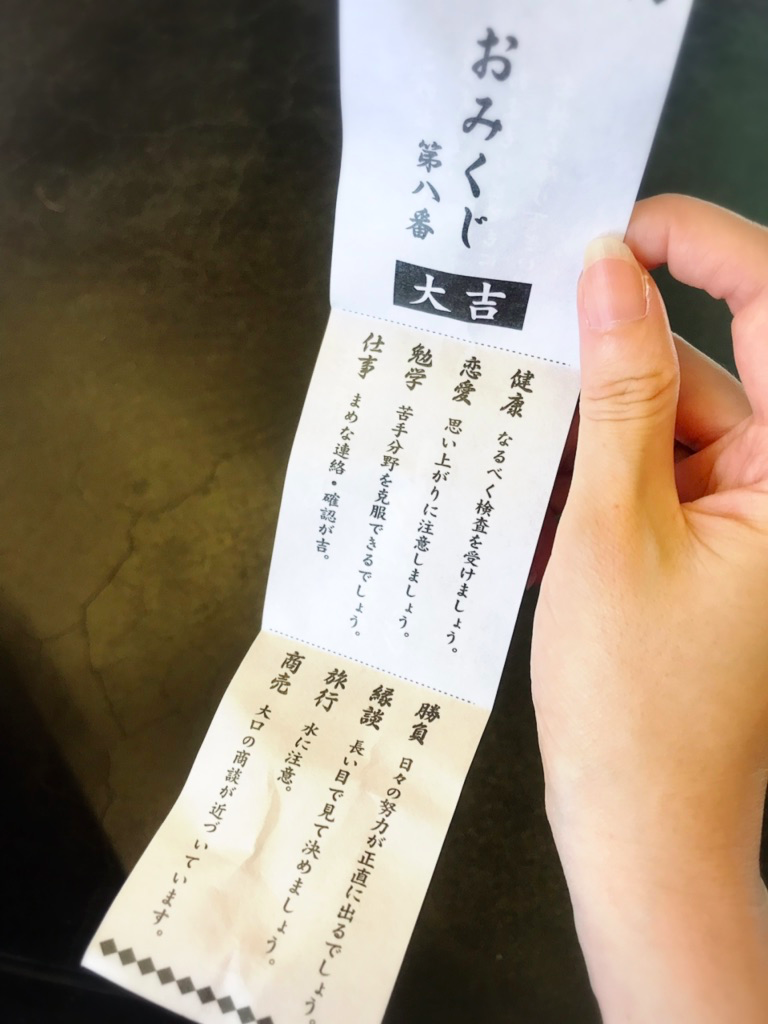 おみくじ
第八番
大吉
健康 なるべく検査を受けましょう。
恋愛 思い上がりに注意しましょう。
勉学 苦手分野を克服できるでしょう。
仕事 まめな連絡・確認が吉。
勝負 日々の努力が正直に出るでしょう。
縁談 長い目で見て決めましょう。
旅行 水に注意。
商売 大口の商談が近づいています。